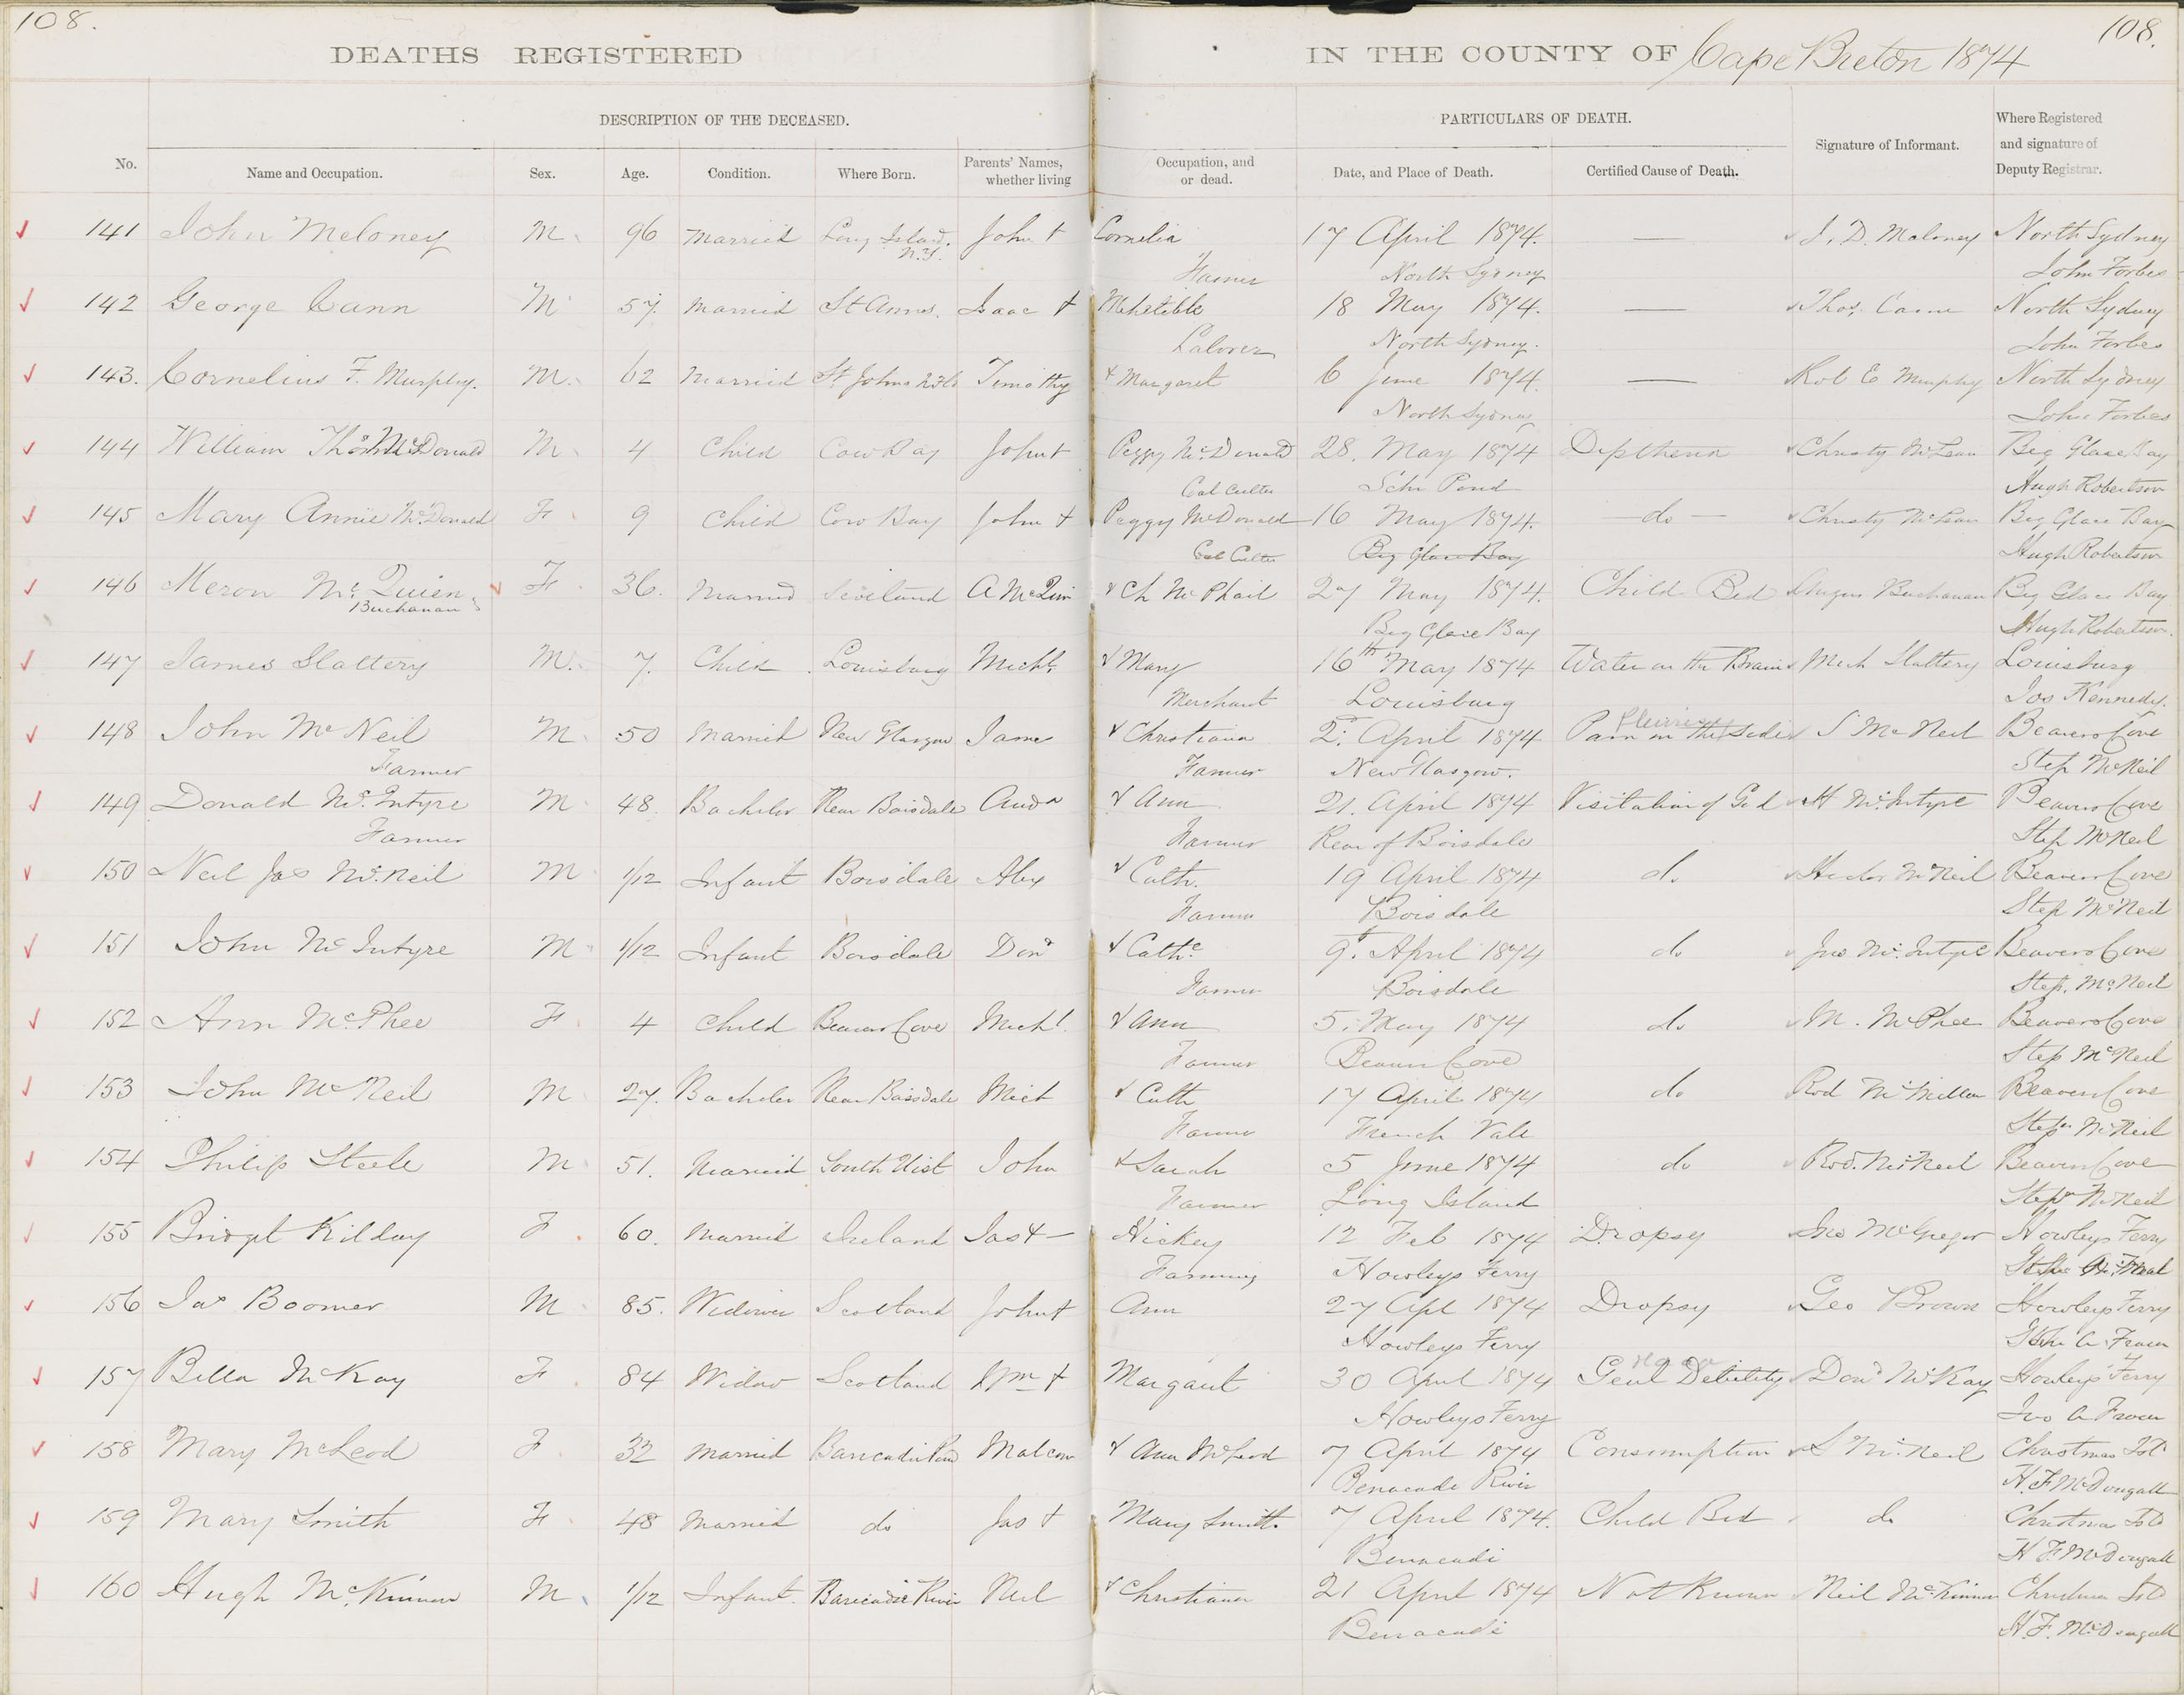 108. 108.
DEATHS REGISTERED IN THE COUNTY OF Cape Breton 1874
DESCRIPTION OF THE DECEASED. PARTICULARS OF DEATH. Where Registered
and signature of
Deputy Registrar.
No. Name and Occupation. Sex. Age. Condition. Where Born. Parents' Names, whether living Occupation, and or dead. Date, and Place of Death. Certified Cause of Death. Signature of Informant.
141 John Meloney M. 96 Married Long Island. N.Y. John & Cornelia 17 April 1874. — J. D. Maloney North Sydney
Farmer North Sydney John Forbes
142 George Cann M 57. Married St Anns. Isaac & Mehetible 18 May 1874. — Thos. Cann North Sydney
Laborer North Sydney. John Forbes
143. Cornelius F. Murphy. M. 62 Married St Johns Nfld Timothy & Margaret 6 June 1874. — Rob E Murphy North Sydney
North Sydney John Forbes
144 William Thos McDonald M. 4 Child Cow Bay John & Peggy McDonald 28. May 1874 Diptheria Christy McLean Big Glace Bay
Coal Cutter Schr Pond Hugh Robertson
145 Mary Annie McDonald F 9 Child Cow Bay John & Peggy McDonald 16 May 1874. — do — Christy McLean Big Glace Bay
Coal Cutter Big Glace Bay Hugh Robertson
146 Meron McQuien F 36. Married Scotland A McQuin & Ch McPhail 27 May 1874. Child Bed Angus Buchanan Big Glace Bay
Buchanan Big Glace Bay Hugh Robertson.
147 James Slattery M. 7. Child Louisburg Michl. & Mary 16th May 1874 Water on the Brain Mich Slattery Louisburg
Merchant Louisburg Jos Kennedy.
148 John McNeil M. 50 Married New Glasgow James & Christiana 2. April 1874 Pain in the Side Pleurisy S McNeil Beavers Cove
Farmer Farmer New Glasgow. Step McNeil
149 Donald McIntyre M 48. Bachelor Rear Boisdale Andw & Ann 21. April 1874 Visitation of God H McIntyre Beavers Cove
Farmer Farmer Rear of Boisdale Step McNeil
150 Neil Jas McNeil M 1/12 Infant Boisdale Alex & Cath. 19 April 1874 do Hector McNeil Beavers Cove
Farmer Boisdale Step McNeil
151 John McIntyre M 1/12 Infant Boisdale Dond & Cathe 9. April 1874 do Jno McIntyre Beavers Cove
Farmer Boisdale Step. McNeil
152 Ann McPhee F 4 Child Beavers Cove Michl. & Ann 5. May 1874 do M. McPhee Beavers Cove
Farmer Beaver Cove Step McNeil
153 John McNeil M 27. Bachelor Rear Boisdale Mich & Cath 17 April 1874 do Rod McMillan Beavers Cove
Farmer French Vale Stepn McNeil
154 Philip Steele M 51. Married South Uist John & Sarah 5 June 1874 do Rod. McNeil Beavers Cove
Farmer Long Island Stepn McNeil
155 Bridget Kilday F 60. Married Ireland Jas & — Hickey 12 Feb 1874 Dropsy Jno McGregor Howleys Ferry
Farming Howleys Ferry
156 Jas Boomer M 85. Widower Scotland John & Ann 27 Apl 1874 Dropsy Geo Brown Howleys Ferry
Howleys Ferry
157 Bella McKay F 84 Widow Scotland Wm & Margaret 30 April 1874 Genl Debility Dond McKay Howleys Ferry
Howleys Ferry Jno A Fraser
158 Mary McLeod F 32 Married Malcom & Ann McLeod 7 April 1874 Consumption S McNeil Christmas Isd
Benacade River H. F. McDougall
159 Mary Smith F 48 Married do Jas & Mary Smith 7 April 1874. Child Bed do Christmas Isd
Benacadi H F. McDougall
160 Hugh McKinnon M. 1/12 Infant. Baricadie River Neil & Christiana 21 April 1874 Not Known Neil McKinnon Christmas Isd
Benacadi H. F. McDougall